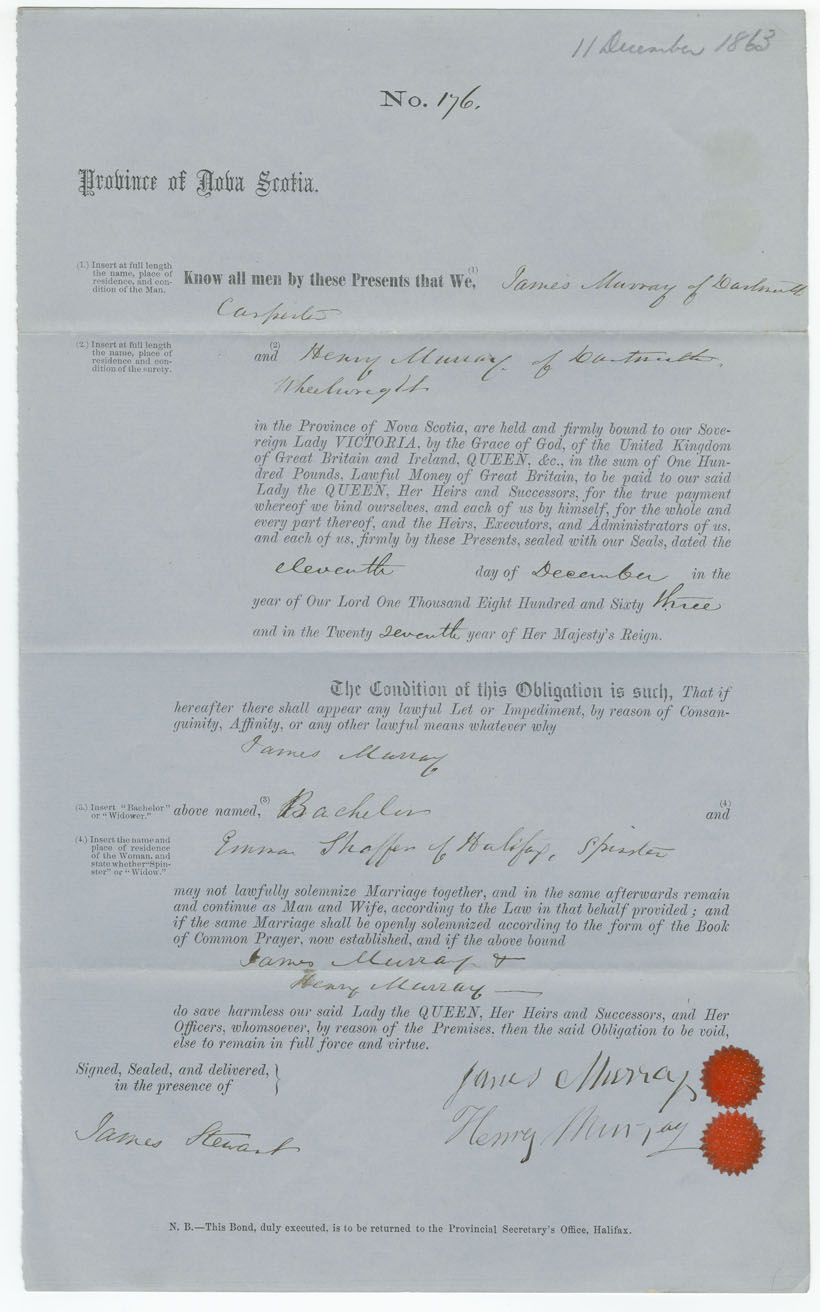 11 December 1863
No. 176.
Province of Nova Scotia.
(1.) Insert at full length
the name, place of
residence, and con-
dition of the Man.
Know all men by these Presents that We, (1) James Murray of Dartmouth
Carpenter
(2.) Insert at full length
the name, place of
residence and con-
dition of the surety.
and (2) Henry Murray of Dartmouth,
Wheelwright
in the Province of Nova Scotia, are held and firmly bound to our Sove-
reign Lady VICTORIA, by the Grace of God, of the United Kingdom
of Great Britain and Ireland, QUEEN, &c., in the sum of One Hun-
dred Pounds, Lawful Money of Great Britain, to be paid to our said
Lady the QUEEN, Her Heirs and Successors, for the true payment
whereof we bind ourselves, and each of us by himself, for the whole and
every part thereof, and the Heirs, Executors, and Administrators of us,
and each of us, firmly by these Presents, sealed with our Seals, dated the
eleventh day of December in the
year of Our Lord One Thousand Eight Hundred and Sixty three
and in the Twenty seventh year of Her Majesty's Reign.
The Condition of this Obligation is such, That if
hereafter there shall appear any lawful Let or Impediment, by reason of Consan-
guinity, Affinity, or any other lawful means whatever why
James Murray
(3.) Insert "Bachelor"
or "Widower."
above named, (3) Bachelor and (4)
(4.) Insert the name and
place of residence
of the Woman, and
state whether "Spin-
ster" or "Widow."
Emma Shaffer of Halifax, Spinster
may not lawfully solemnize Marriage together, and in the same afterwards remain
and continue as Man and Wife, according to the Law in that behalf provided; and
if the same Marriage shall be openly solemnized according to the form of the Book
of Common Prayer, now established, and if the above bound
James Murray &
Henry Murray —
do save harmless our said Lady the QUEEN, Her Heirs and Successors, and Her
Officers, whomsoever, by reason of the Premises, then the said Obligation to be void,
else to remain in full force and virtue.
Signed, Sealed, and delivered,
in the presence of
James Murray
Henry Murray
James Stewart
N. B.—This Bond, duly executed, is to be returned to the Provincial Secretary's Office, Halifax.